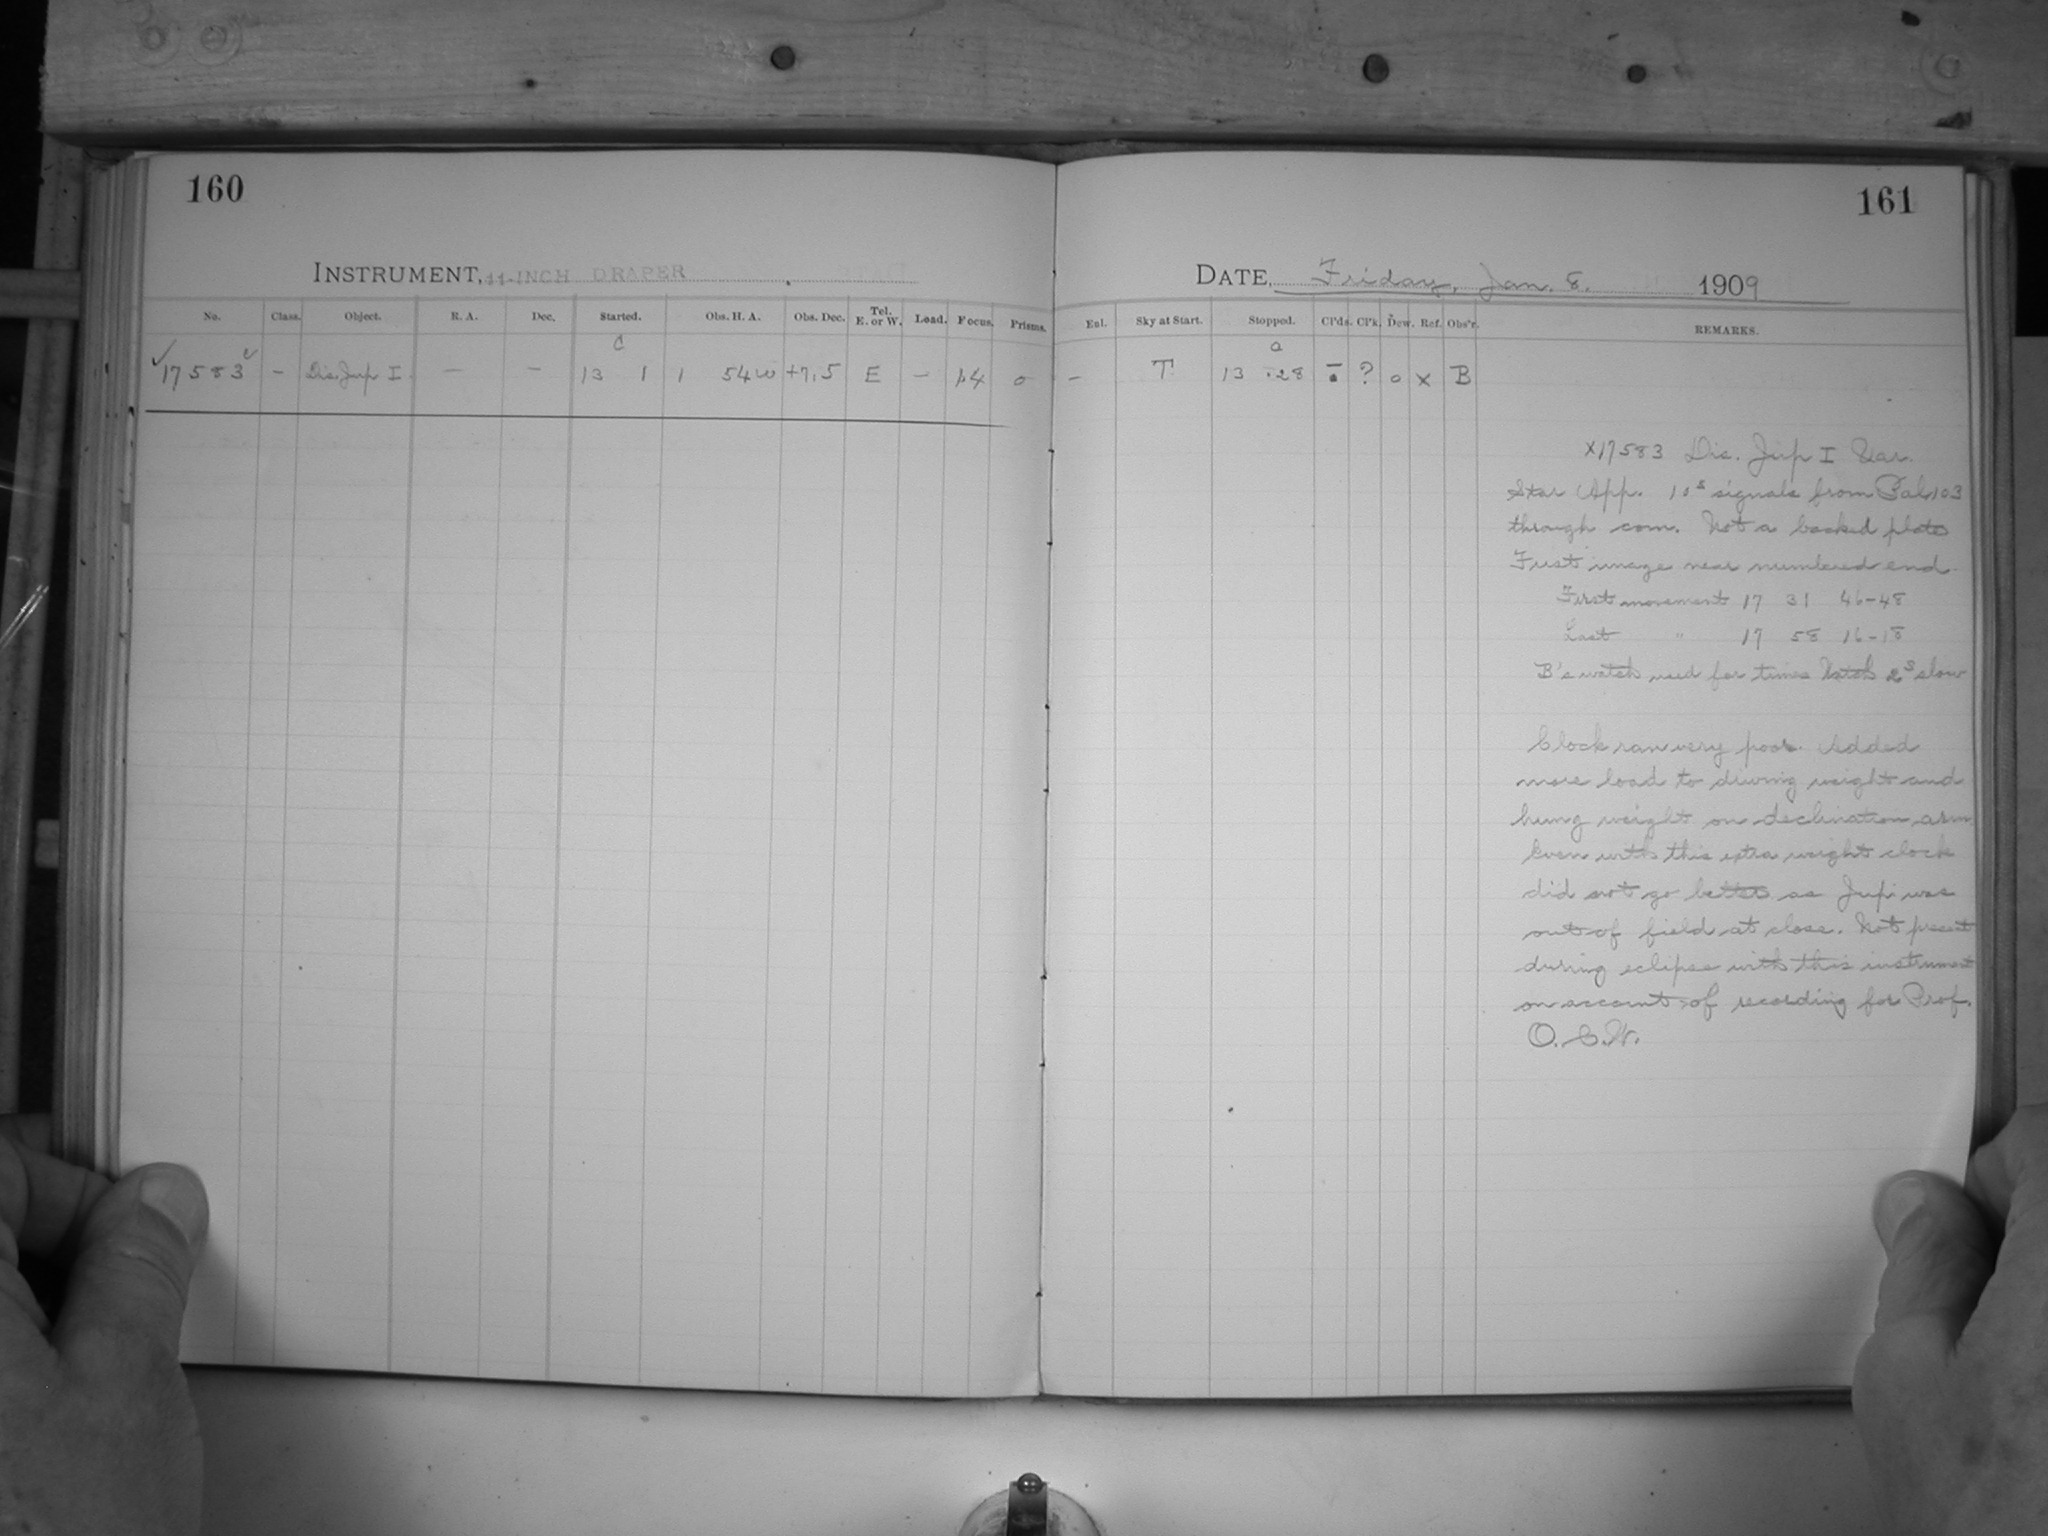 160
161
INSTRUMENT, 11-INCH DRAPER
DATE, Friday, Jan. 8. 1909
No. Class. Object. R. A. Dec. Started. Obs. H. A. Obs. Dec. Tel. E. or W. Load. Focus. Prisms. Enl. Sky at Start. Stopped. Cl'ds. Cl'k. Dew. Ref. Obs'r. REMARKS.
c a
✓17583 – Dis. Jup I. – – 13 1 1 54 w +7.5 E – 1.4 0 – T 13 28 ? 0 x B
x17583 Dis. Jup I Var.
Star App. 10s signals from Bal 103
through com. Not a backed plate
First image near numbered end.
First movement 17 31 46-48
Last " 17 58 16-18
B's watch used for times Watch 2s slow
Clock ran very poor. Added
more load to driving weight and
hung weight on declination arm.
Even with this extra weight clock
did not go better as Jup. was
out of field at close. Not present
during eclipse with this instrument
on account of recording for Prof.
O. C. W.